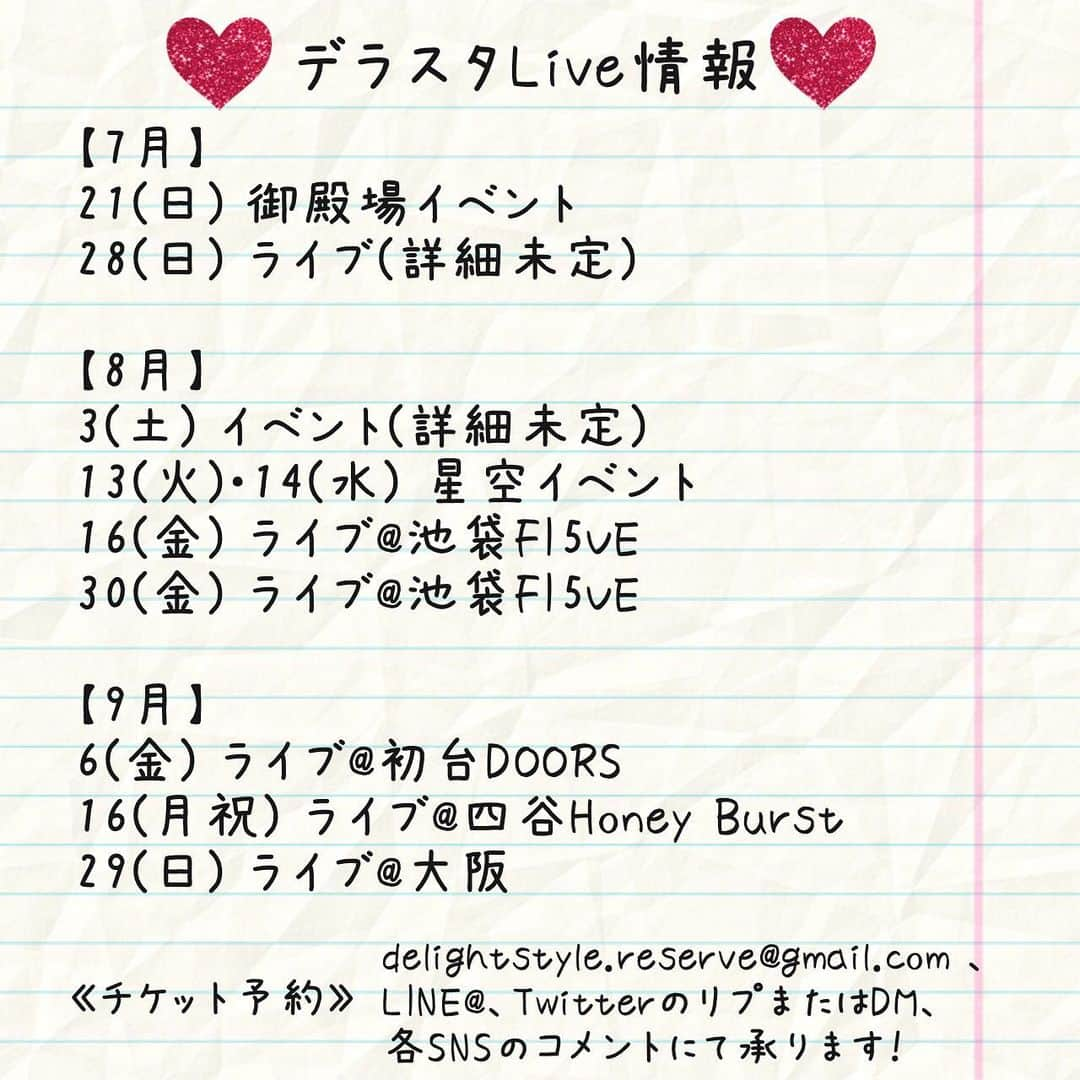 デラスタLive情報
【7月】
21(日) 御殿場イベント
28(日) ライブ(詳細未定)
【8月】
3(土) イベント(詳細未定)
13(火)・14(水) 星空イベント
16(金) ライブ@池袋F15vE
30(金) ライブ@池袋F15vE
【9月】
6(金) ライブ@初台DOORS
16(月祝) ライブ@四谷Honey Burst
29(日) ライブ@大阪
delightstyle.reserve@gmail.com 、
≪チケット予約≫ LINE@、TwitterのリプまたはDM、
各SNSのコメントにて承ります!